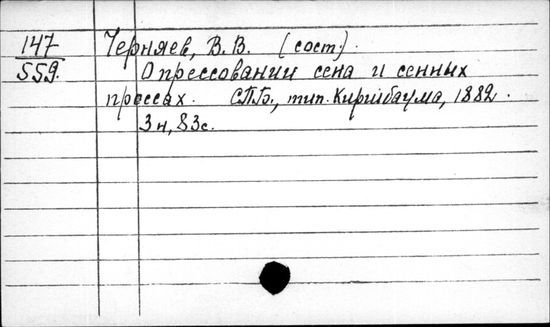 147 Черняев, В.В. (сост.)
559. О прессовании сена и сенных
прессах. СПБ., тип. Киршбаума, 1882.
3н, 83с.